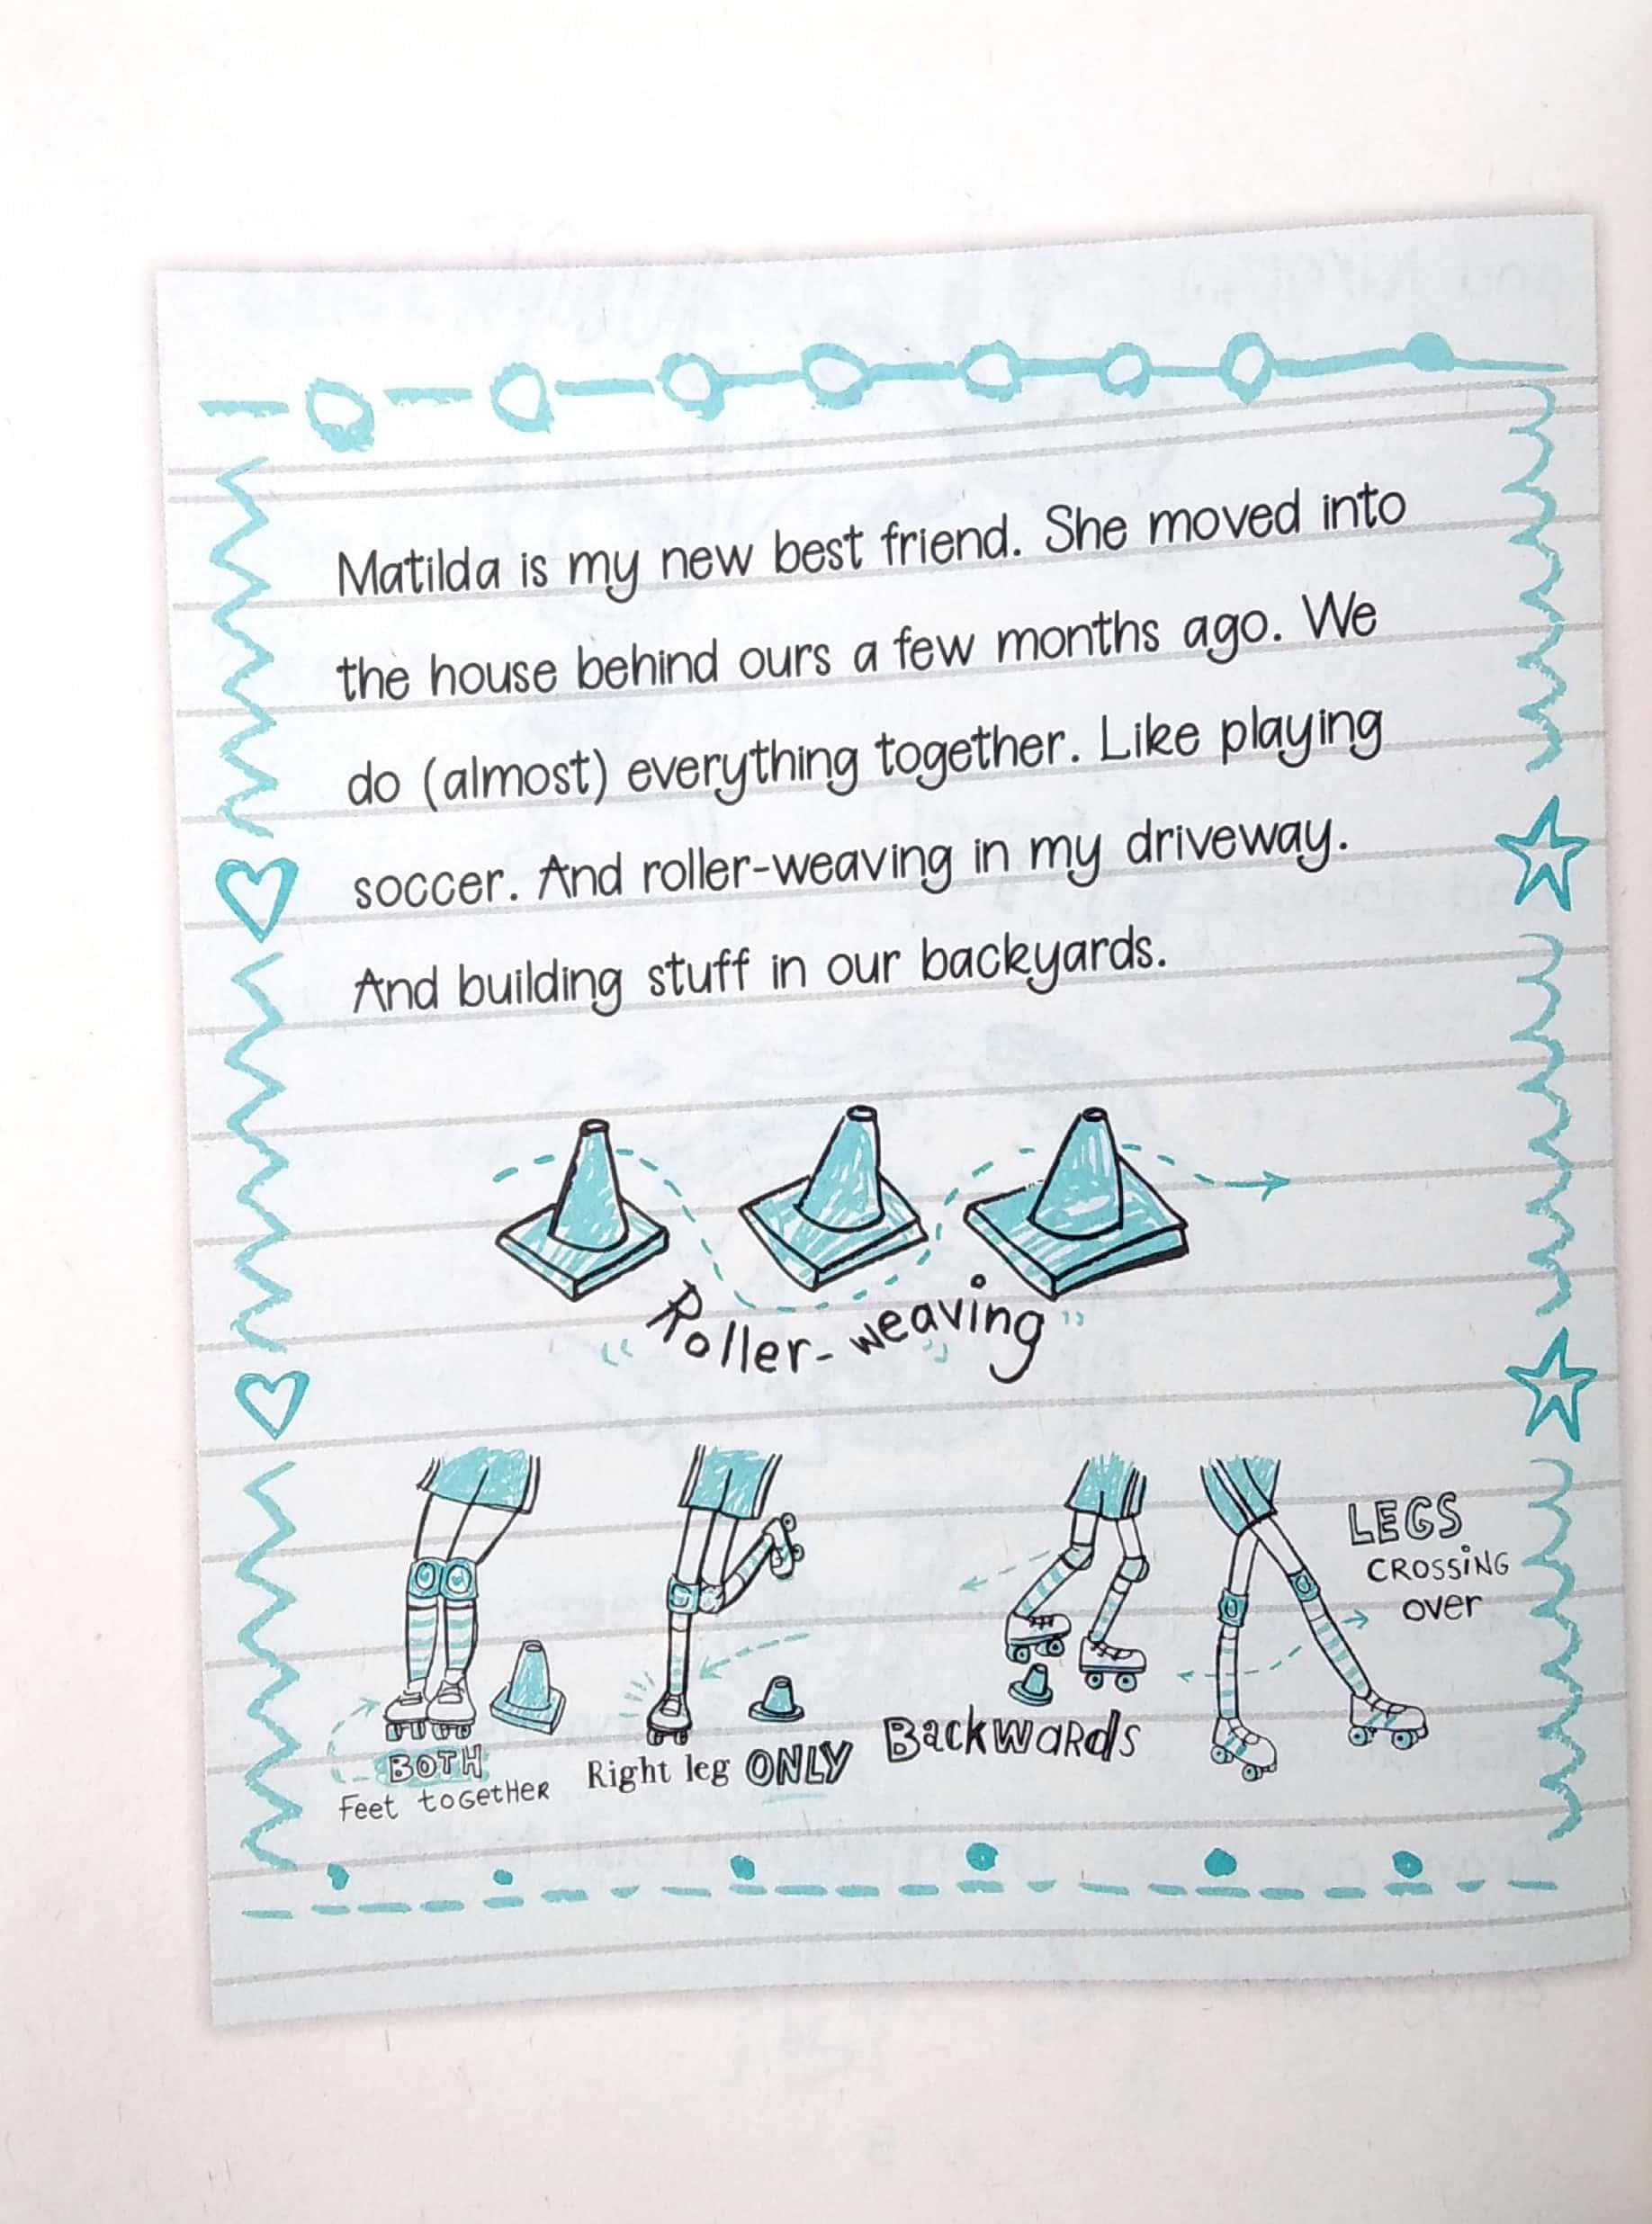 Matilda is my new best friend. She moved into
the house behind ours a few months ago. We
do (almost) everything together. Like playing
soccer. And roller-weaving in my driveway.
And building stuff in our backyards.
"Roller-weaving"
BOTH
Feet toGetHeR
Right leg ONLY
BackwaRds
LEGS
CROSSiNG
over